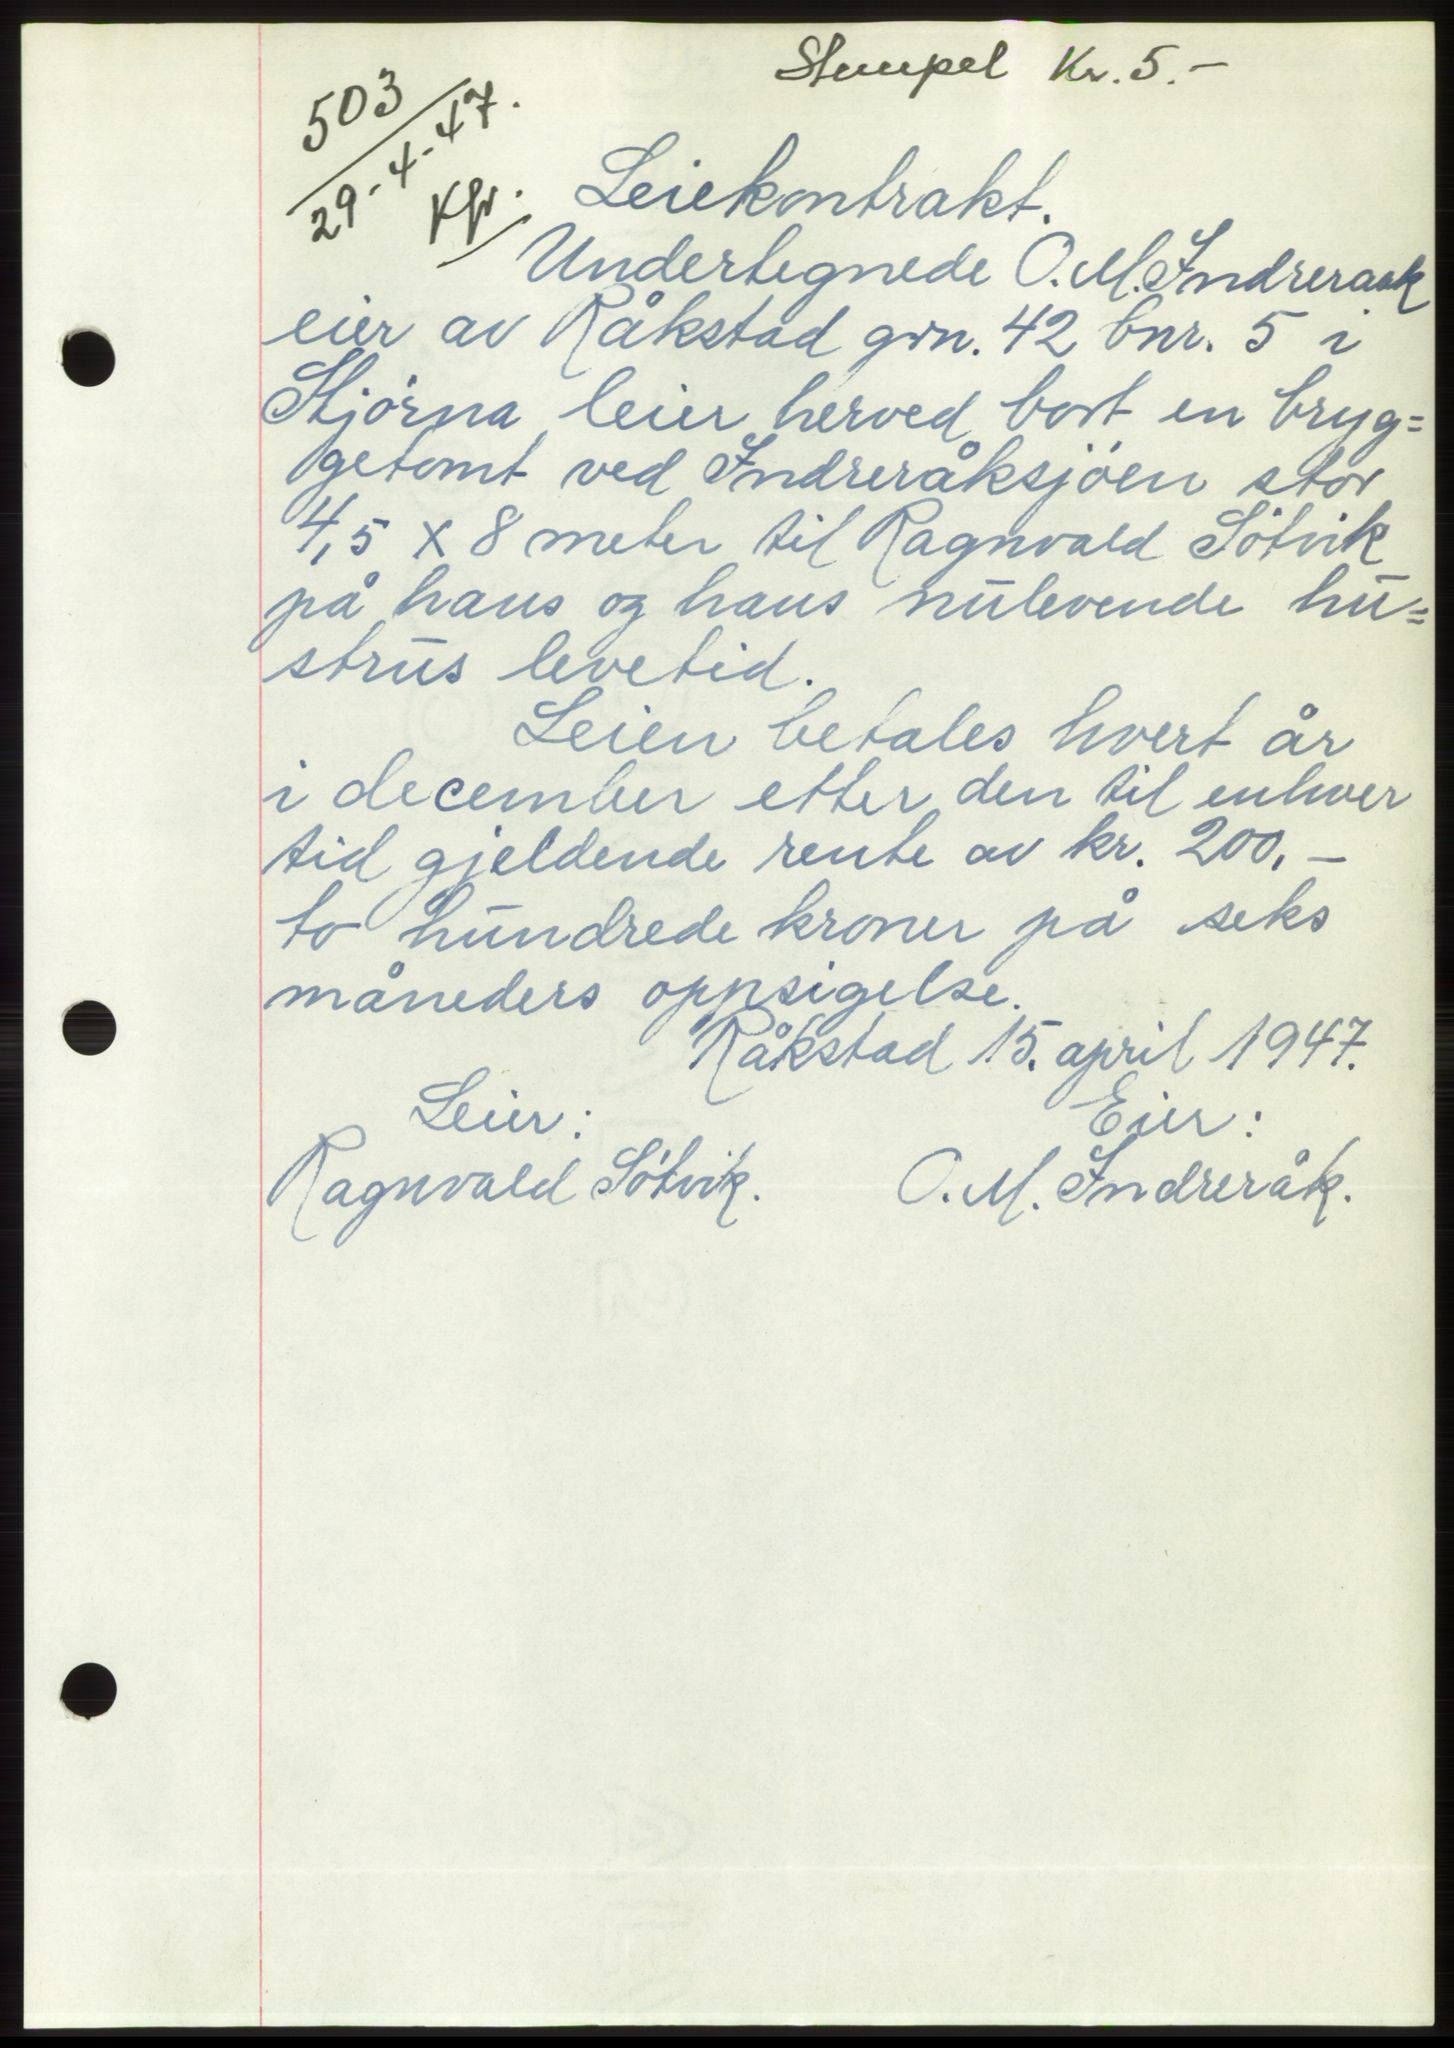 Stempel Kr. 5.-
503
29-4-47.
Kfr.
Leiekontrakt.
Undertegnede O. M. Indreraak
eier av Råkstad grn. 42 bnr. 5 i
Stjörna leier herved bort en bryg=
getomt ved Indreråksjöen stor
4,5 x 8 meter til Ragnvald Sötvik
på hans og hans nulevende hu=
strus levetid.
Leien betales hvert år
i december etter den til enhver
tid gjeldende rente av kr. 200,-
to hundrede kroner på seks
måneders oppsigelse.
Råkstad 15. april 1947.
Leier: Eier:
Ragnvald Sötvik. O. M. Indreråk.